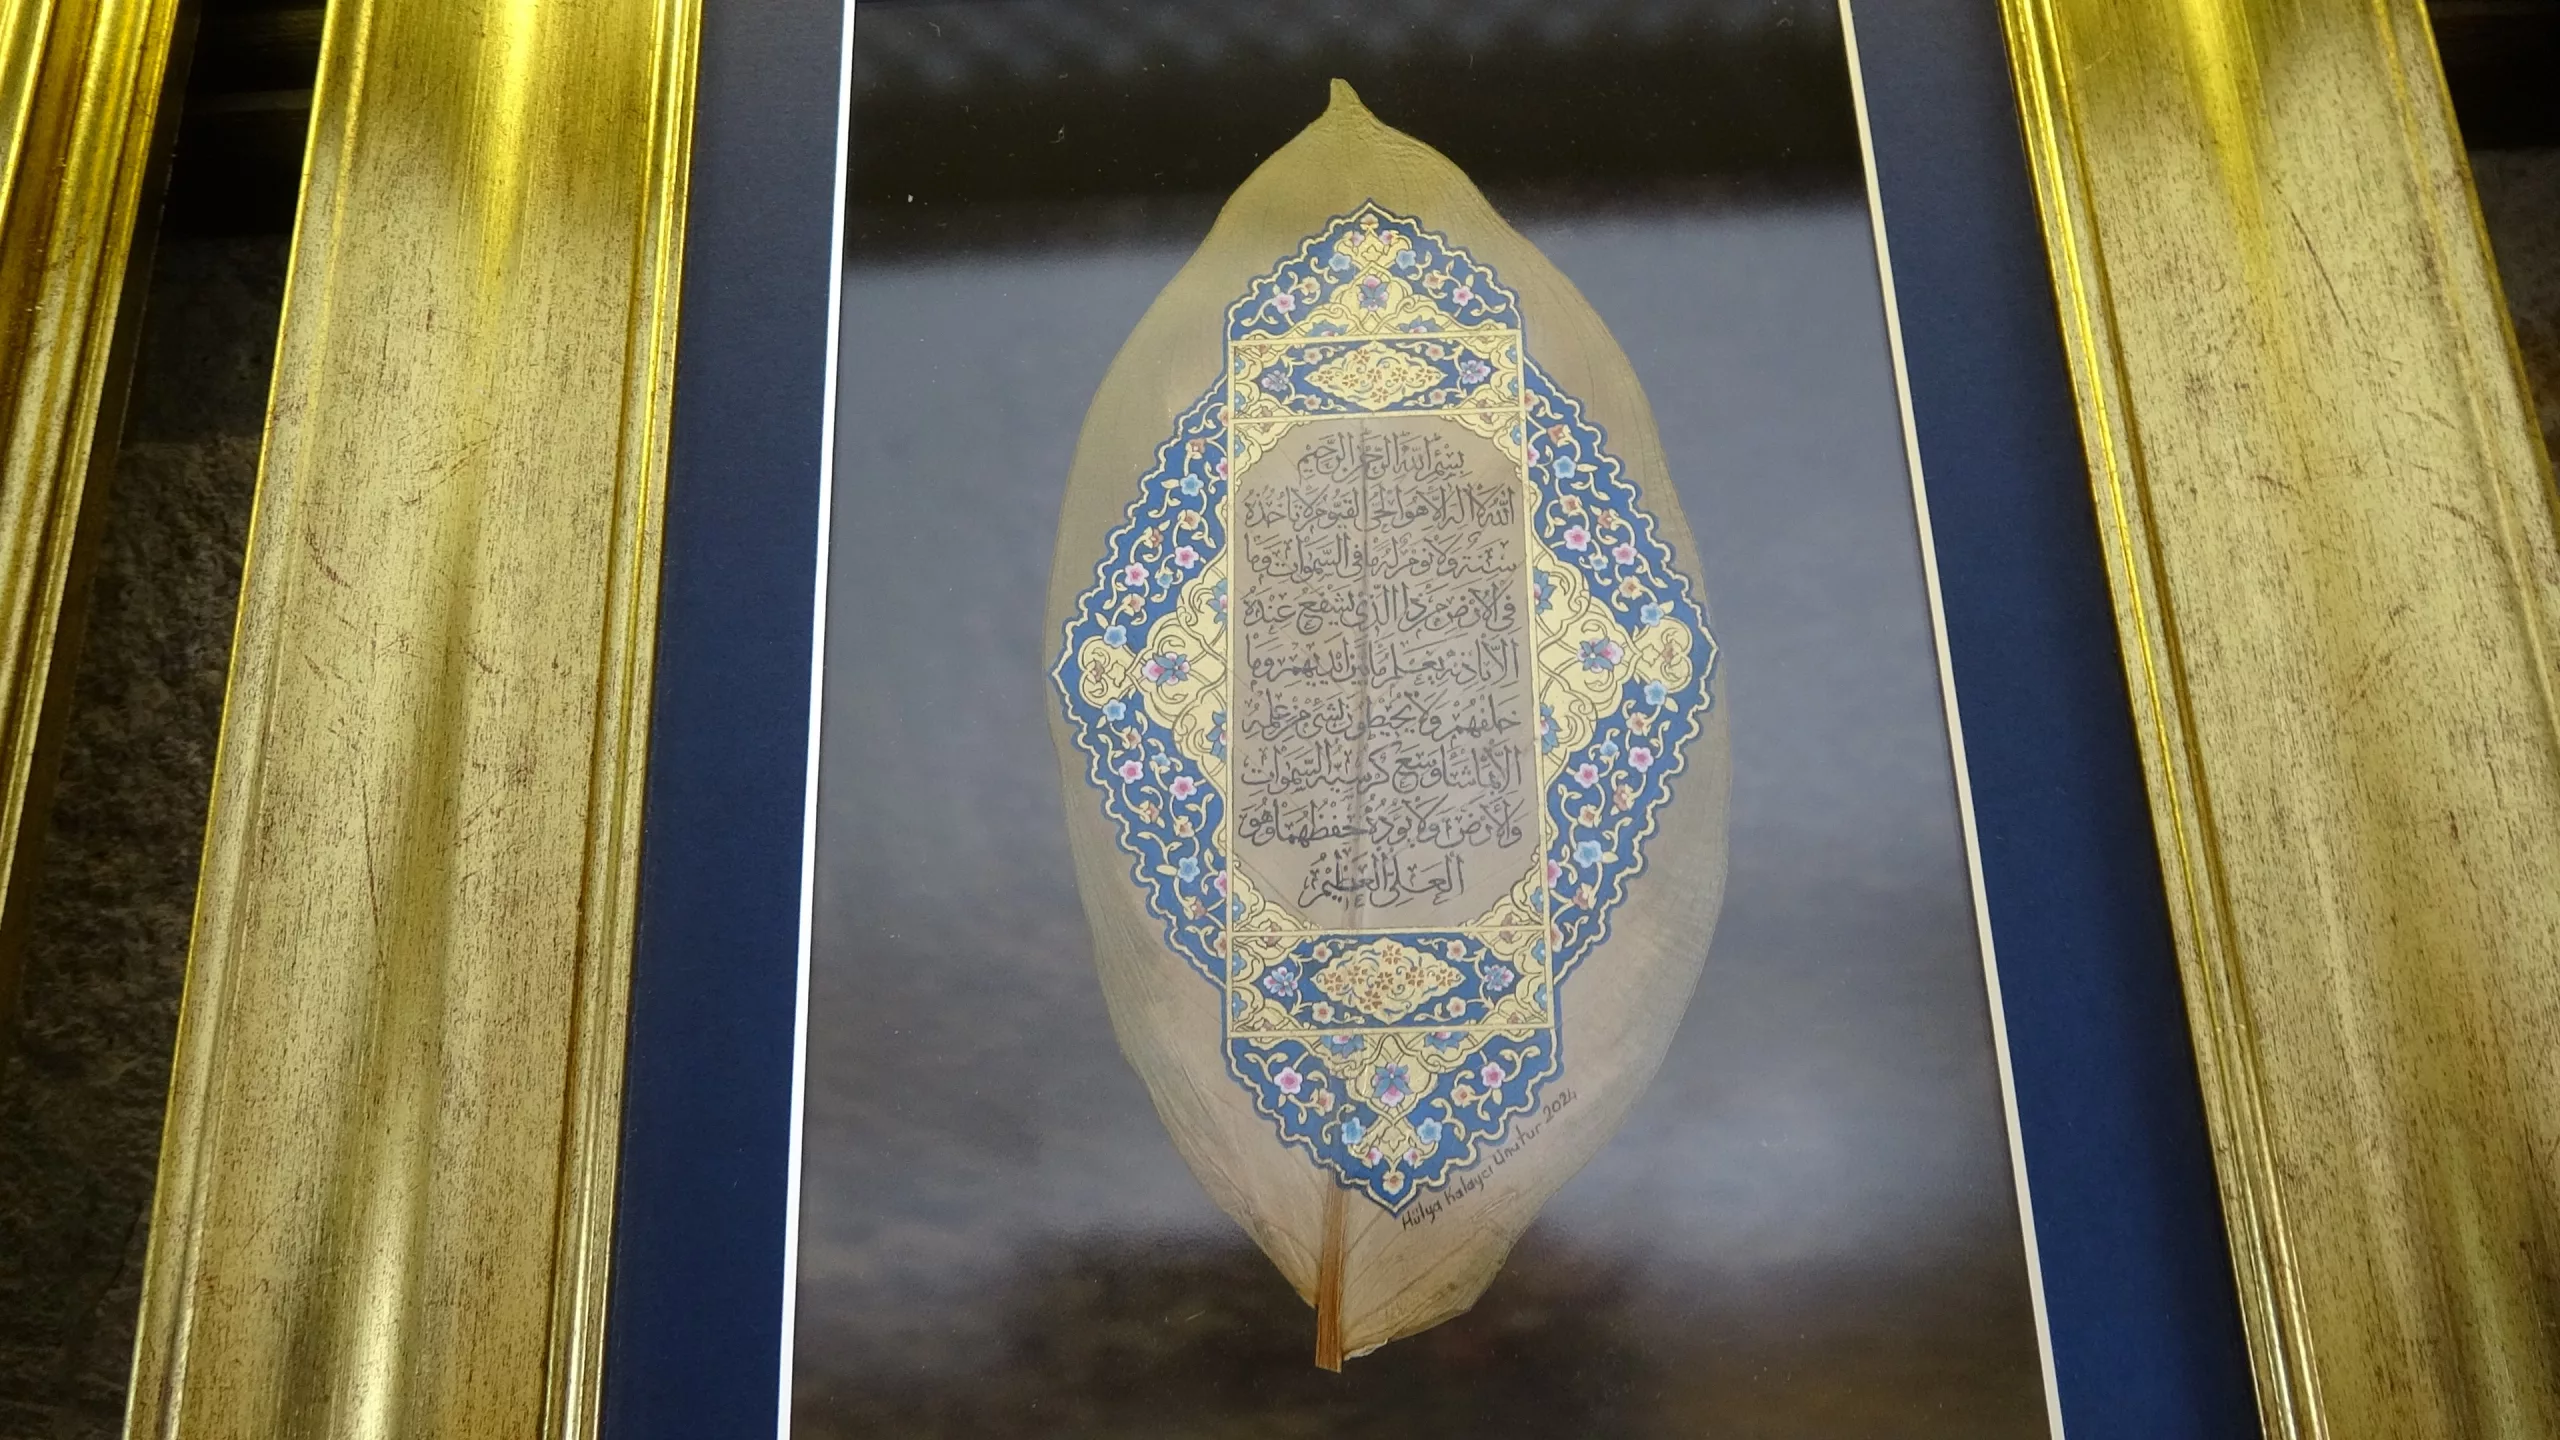 بِسْمِ اللّٰهِ الرَّحْمٰنِ الرَّحِيمِ
اَللّٰهُ لَا اِلٰهَ اِلَّا هُوَ الْحَىُّ الْقَيُّومُ لَا تَاْخُذُهُ
سِنَةٌ وَلَا نَوْمٌ لَهُ مَا فِى السَّمٰوَاتِ وَمَا
فِى الْاَرْضِ مَنْ ذَا الَّذِى يَشْفَعُ عِنْدَهُ
اِلَّا بِاِذْنِهِ يَعْلَمُ مَا بَيْنَ اَيْدِيهِمْ وَمَا
خَلْفَهُمْ وَلَا يُحِيطُونَ بِشَىْءٍ مِنْ عِلْمِهِ
اِلَّا بِمَا شَاءَ وَسِعَ كُرْسِيُّهُ السَّمٰوَاتِ
وَالْاَرْضَ وَلَا يَؤُدُهُ حِفْظُهُمَا وَهُوَ
الْعَلِىُّ الْعَظِيمُ
Hülya Kalaycı Unutur 2024